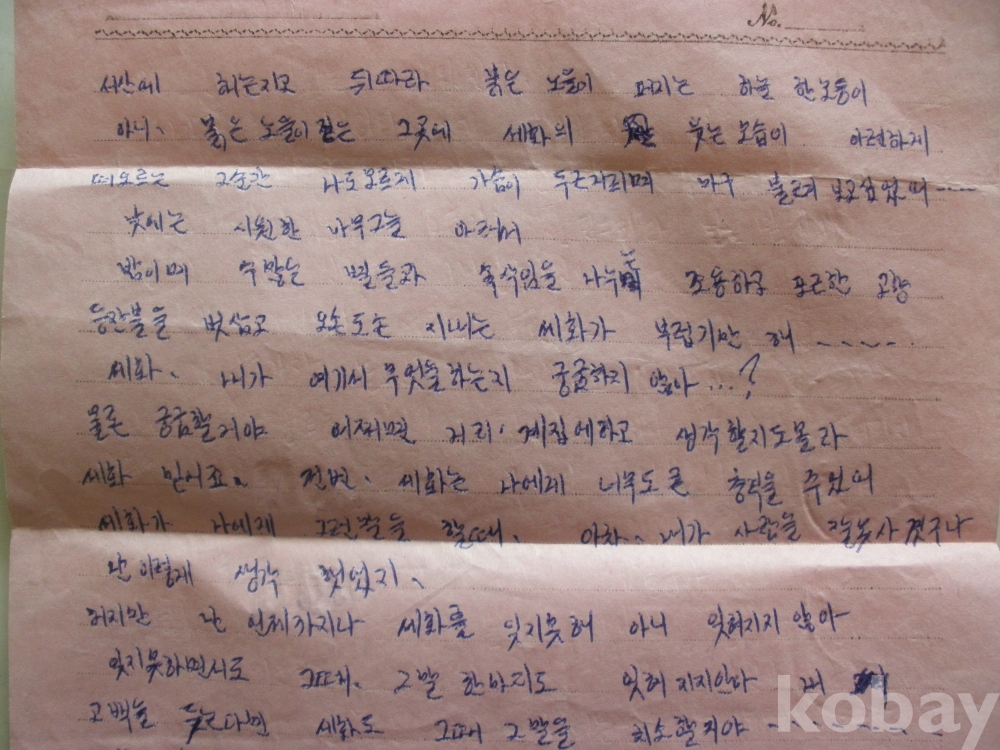 No.
서산에 해는지고 뒤따라 붉은 노을이 퍼지는 하늘 한모퉁이
아니, 붉은 노을이 짙는 그곳에 세화의 웃는 모습이 아련하게
떠오르는 그순간 나도모르게 가슴이 두근거리며 마구 불르며 보고싶었어 ----
낮에는 시원한 나무그늘 아래서
밤이며 수많은 별들과 속삭임을 나누며 조용하고 포근한 고향
등잔불을 벗삼고 오손도손 지내는 세화가 부럽기만 해 ~ ~ ~ ~ .
세화. 내가 여기서 무엇을하는지 궁금하지 않아...?
물론 궁금할거야 어쩌면 거리·계집애하고 생각할지도몰라
세화 믿어죠. 전번. 세화는 나에게 너무도큰 충격을 주었어
세화가 나에게 그런말을 할때. 아차. 내가 사람을 잘못사겼구나
난 이렇게 생각 했었지.
허지만 난 언제가지나 세화를 잊지못해 아니 잊혀지지않아
잊지못하면서도 그때. 그말 한마디도 잊혀지지안아 내
고백을 듣는다면 세화도 그때 그말을 취소할거야
kobay